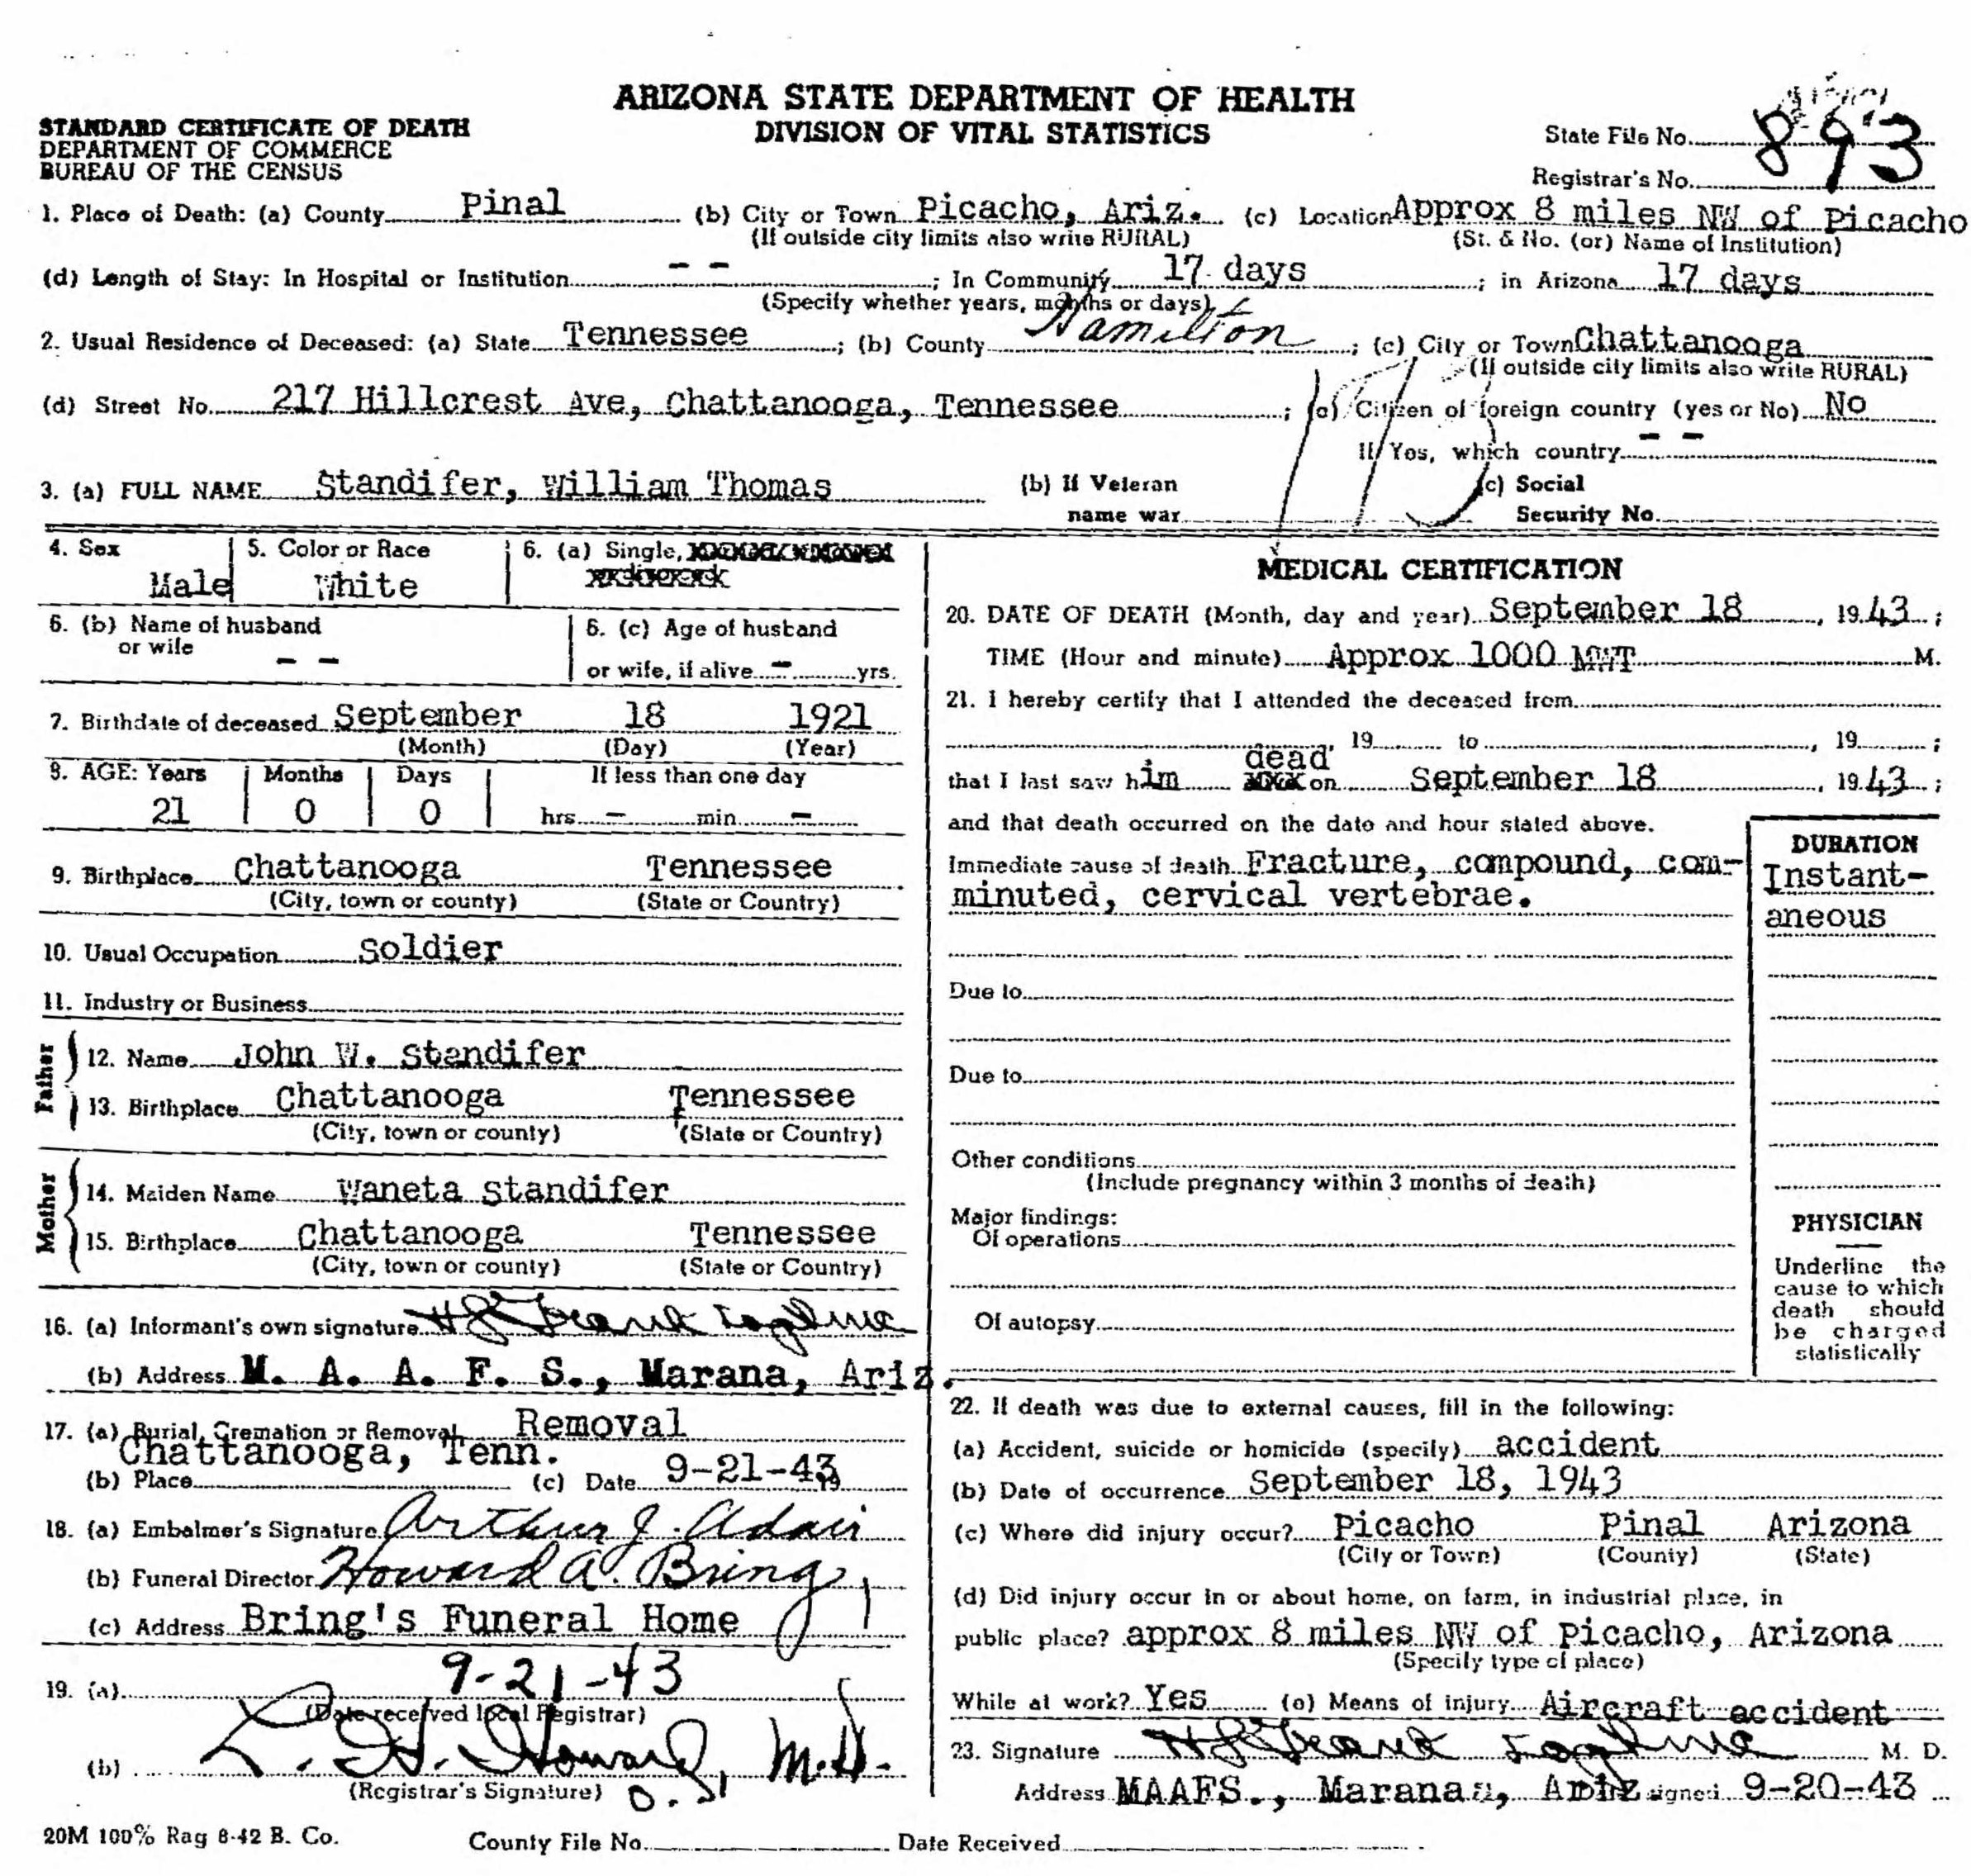 ARIZONA STATE DEPARTMENT OF HEALTH
DIVISION OF VITAL STATISTICS
STANDARD CERTIFICATE OF DEATH
DEPARTMENT OF COMMERCE
BUREAU OF THE CENSUS
State File No. 893
Registrar's No.
1. Place of Death: (a) County Pinal (b) City or Town Picacho, Ariz. (c) Location Approx 8 miles NW of Picacho
(If outside city limits also write RURAL) (St. & No. (or) Name of Institution)
(d) Length of Stay: In Hospital or Institution -- ; In Community 17 days ; in Arizona 17 days
(Specify whether years, months or days)
2. Usual Residence of Deceased: (a) State Tennessee ; (b) County Hamilton ; (c) City or Town Chattanooga
(If outside city limits also write RURAL)
(d) Street No. 217 Hillcrest Ave, Chattanooga, Tennessee ; (e) Citizen of foreign country (yes or No) No
If Yes, which country --
3. (a) FULL NAME Standifer, William Thomas (b) If Veteran (c) Social
name war Security No.
4. Sex 5. Color or Race 6. (a) Single,
Male White
6. (b) Name of husband 6. (c) Age of husband
or wife -- or wife, if alive - yrs.
7. Birthdate of deceased September 18 1921
(Month) (Day) (Year)
8. AGE: Years Months Days If less than one day
21 0 0 hrs. - min. -
9. Birthplace Chattanooga Tennessee
(City, town or county) (State or Country)
10. Usual Occupation Soldier
11. Industry or Business
Father
12. Name John W. Standifer
13. Birthplace Chattanooga Tennessee
(City, town or county) (State or Country)
Mother
14. Maiden Name Waneta Standifer
15. Birthplace Chattanooga Tennessee
(City, town or county) (State or Country)
16. (a) Informant's own signature
(b) Address M. A. A. F. S., Marana, Ariz.
17. (a) Burial, Cremation or Removal Removal
Chattanooga, Tenn.
(b) Place (c) Date 9-21-43
18. (a) Embalmer's Signature Arthur J. Adair
(b) Funeral Director Howard A. Bring
(c) Address Bring's Funeral Home
19. (a) 9-21-43
(Date received local Registrar)
(b) L. H. Howard, M.D.
(Registrar's Signature)
MEDICAL CERTIFICATION
20. DATE OF DEATH (Month, day and year) September 18, 1943;
TIME (Hour and minute) Approx 1000 MWT M.
21. I hereby certify that I attended the deceased from
, 19 to , 19 ;
dead
that I last saw him on September 18, 1943;
and that death occurred on the date and hour stated above.
Immediate cause of death Fracture, compound, com-
minuted, cervical vertebrae.
DURATION
Instant-
aneous
Due to
Due to
Other conditions
(Include pregnancy within 3 months of death)
Major findings:
Of operations
Of autopsy
PHYSICIAN
Underline the
cause to which
death should
be charged
statistically
22. If death was due to external causes, fill in the following:
(a) Accident, suicide or homicide (specify) accident
(b) Date of occurrence September 18, 1943
(c) Where did injury occur? Picacho Pinal Arizona
(City or Town) (County) (State)
(d) Did injury occur in or about home, on farm, in industrial place, in
public place? approx 8 miles NW of Picacho, Arizona
(Specify type of place)
While at work? Yes (e) Means of injury Aircraft accident
23. Signature M. D.
Address MAAFS., Marana, Ariz signed 9-20-43
20M 100% Rag 8-42 B. Co. County File No. Date Received